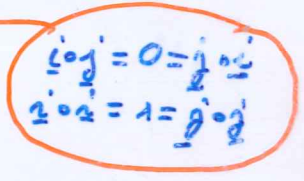 i∘j = 0 = j∘i
i∘i = 1 = j∘j